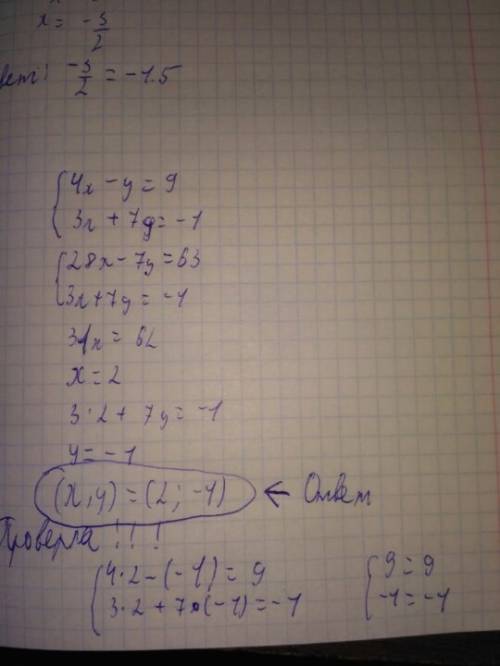 x = -3/2
вет: -3/2 = -1.5
{4x - y = 9
{3x + 7y = -1
{28x - 7y = 63
{3x + 7y = -1
31x = 62
x = 2
3·2 + 7y = -1
y = -1
(x, y) = (2; -1) ← Ответ
Проверла !!!
{4·2 - (-1) = 9 {9 = 9
{3·2 + 7·(-1) = -1 {-1 = -1